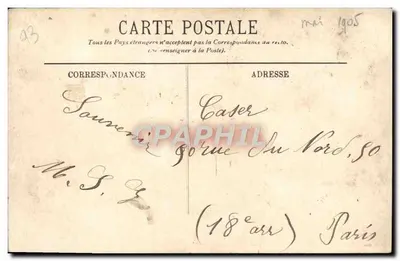 93
mai 1905
CARTE POSTALE
Tous les Pays étrangers n'acceptent pas la Correspondance au recto.
(se renseigner à la Poste).
CORRESPONDANCE
ADRESSE
Souvenir
M. S. Z
Caser
90 rue du Nord. 90
(18e arr) Paris
CPAPHIL